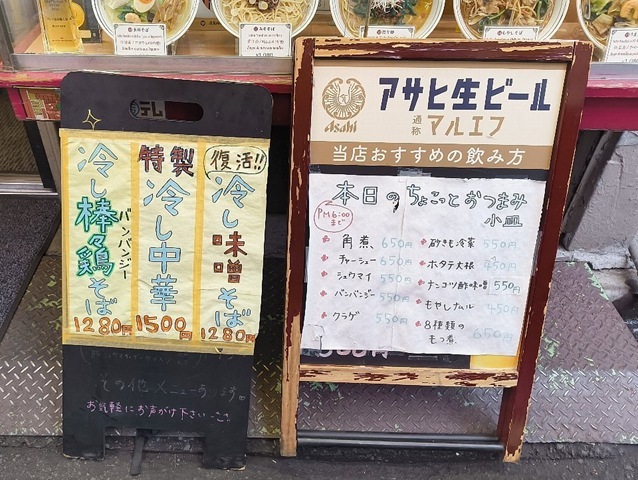 テレ
復活!!
冷し味噌そば
1280円
特製
冷し中華
1500円
冷し棒々鶏そば
バンバンジー
1280円
その他メニュー
お気軽にお声がけ下さい
Asahi
アサヒ生ビール
通称 マルエフ
当店おすすめの飲み方
本日のちょこっとおつまみ
小皿
PM6:00
まで
角煮 650円
チャーシュー 650円
シュウマイ 550円
バンバンジー 550円
クラゲ 550円
砂きも冷菜 550円
ホタテ大根 450円
ナンコツ酢味噌 550円
もやしナムル 450円
8種類の
もつ煮 650円